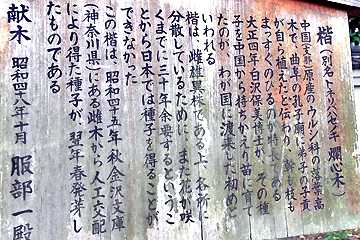 楷（別名トネリバハゼ 爛心木）
中国（支那）原産のウルシ科の落葉高
木で、曲阜の孔子廟に弟子の子貢
が自ら植えたと伝わり、幹も枝も
まっすぐにのびるのが特長である
大正四年白沢保美博士が、その種
子を中国から持ちかえり苗に育て
たのが、わが国に渡来した初めと
いわれる
楷は、雌雄異株である上、各所に
分散しているために、また花が咲
くまでに三十年余要するというこ
とから日本では種子を得ることが
できなかった
この楷は、昭和四十五年秋、金沢文庫
（神奈川県）にある雌木から人工交配
により得た種子が、翌年春発芽し
たものである
献木 昭和四十八年十月 服部一殿